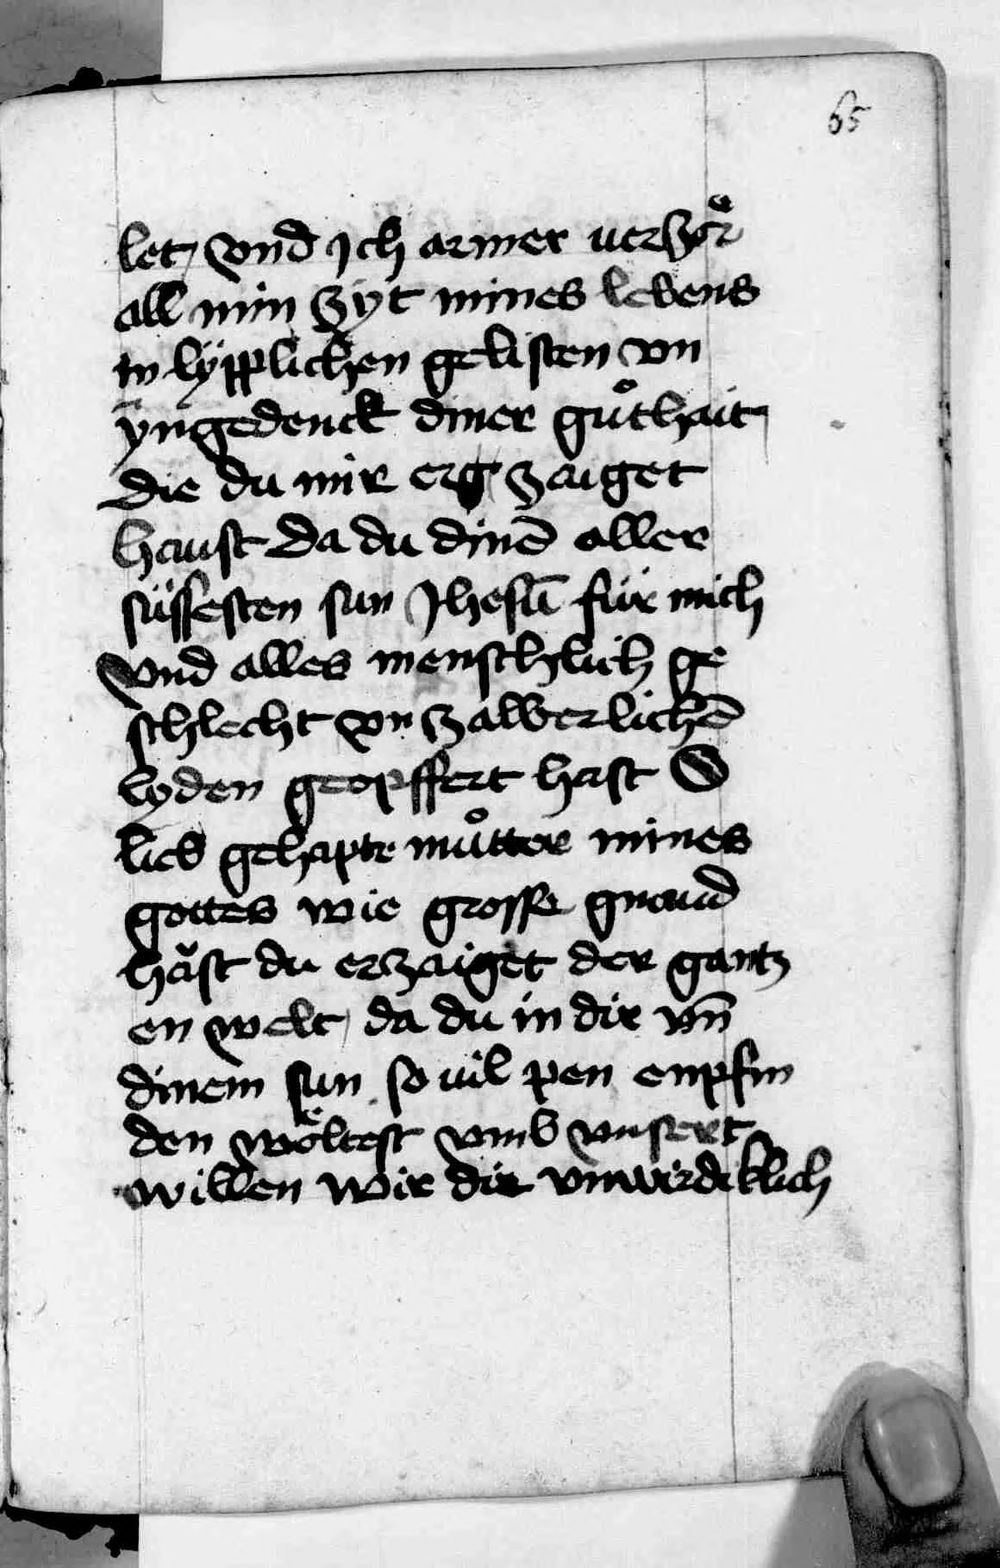 65
let, vnd ich armer verzör
all min zyt mines lebens
in lÿpplichen gelisten vn
yngedenck diner guͦthait
die du mir erg zaiget
haust da du dinē aller
süssesten sun Jhesū für mich
vnd alles menschlich ge
schlecht vn zalberlichē
lyden geopffert hast O
lieb gehapte muͦtter mines
gottes wie grosse gnaud
hăst du erzaiget der gantz
en welt, da du in dir vn̄
dinem sun so uil pen enpfin
den wöltest vmb vnsert
willen wir die vnwirdeklich